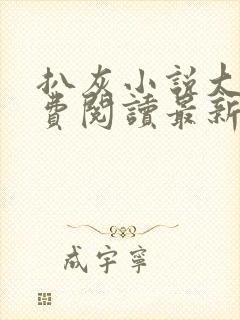 扒灰小説大
費閱讀最新
成宇寧